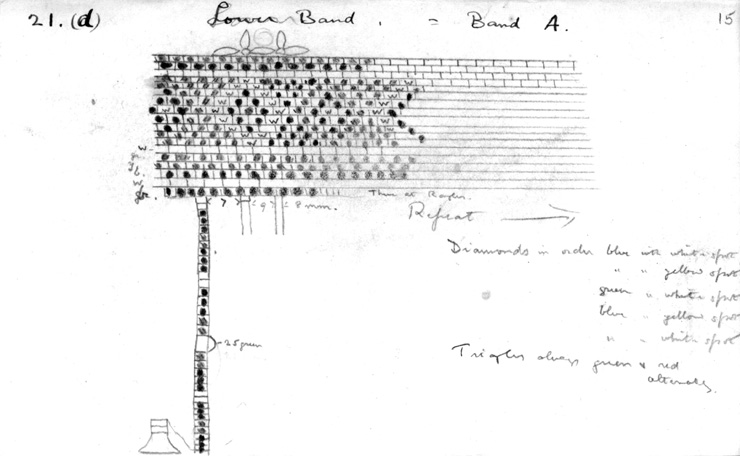 21. (d) Lower Band. = Band A. 15
W W W W W
W.
gr.
b.
W
gr.
7 = 9 = 8 mm.
Repeat
Diamonds in order blue with white spot
" " yellow spot
green " white spot
blue " yellow spot
" " white spot
25 green
Triangles always green & red
alternately.